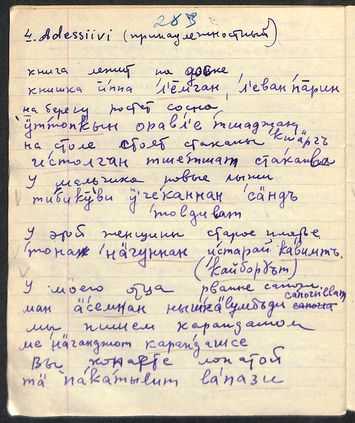 283
4. Adessiivi (принадлежностный)
книга лежит на доске
книшка ӣппа л'е̄мган, л'еван па̄рин
на берегу растет сосна
ӱттонкын оравл'е тшаджан
на столе стоят стаканы
истолган тшетшат стаканла
У мальчика новые лыжи
тибикӯви ӱчеканнан 'са̄ндъ
товдиват
У этой женщины старое платье
на̄гуннан истарай кабимтъ
(кайборгът)
У моего отца рваные сапоги
ман а̄с'емнан сапогилат
мы пишем карандашом
ме на̄ганджот карандашсе
Вы копаете лопатой
та̄ па̄катывит ла̄пазе